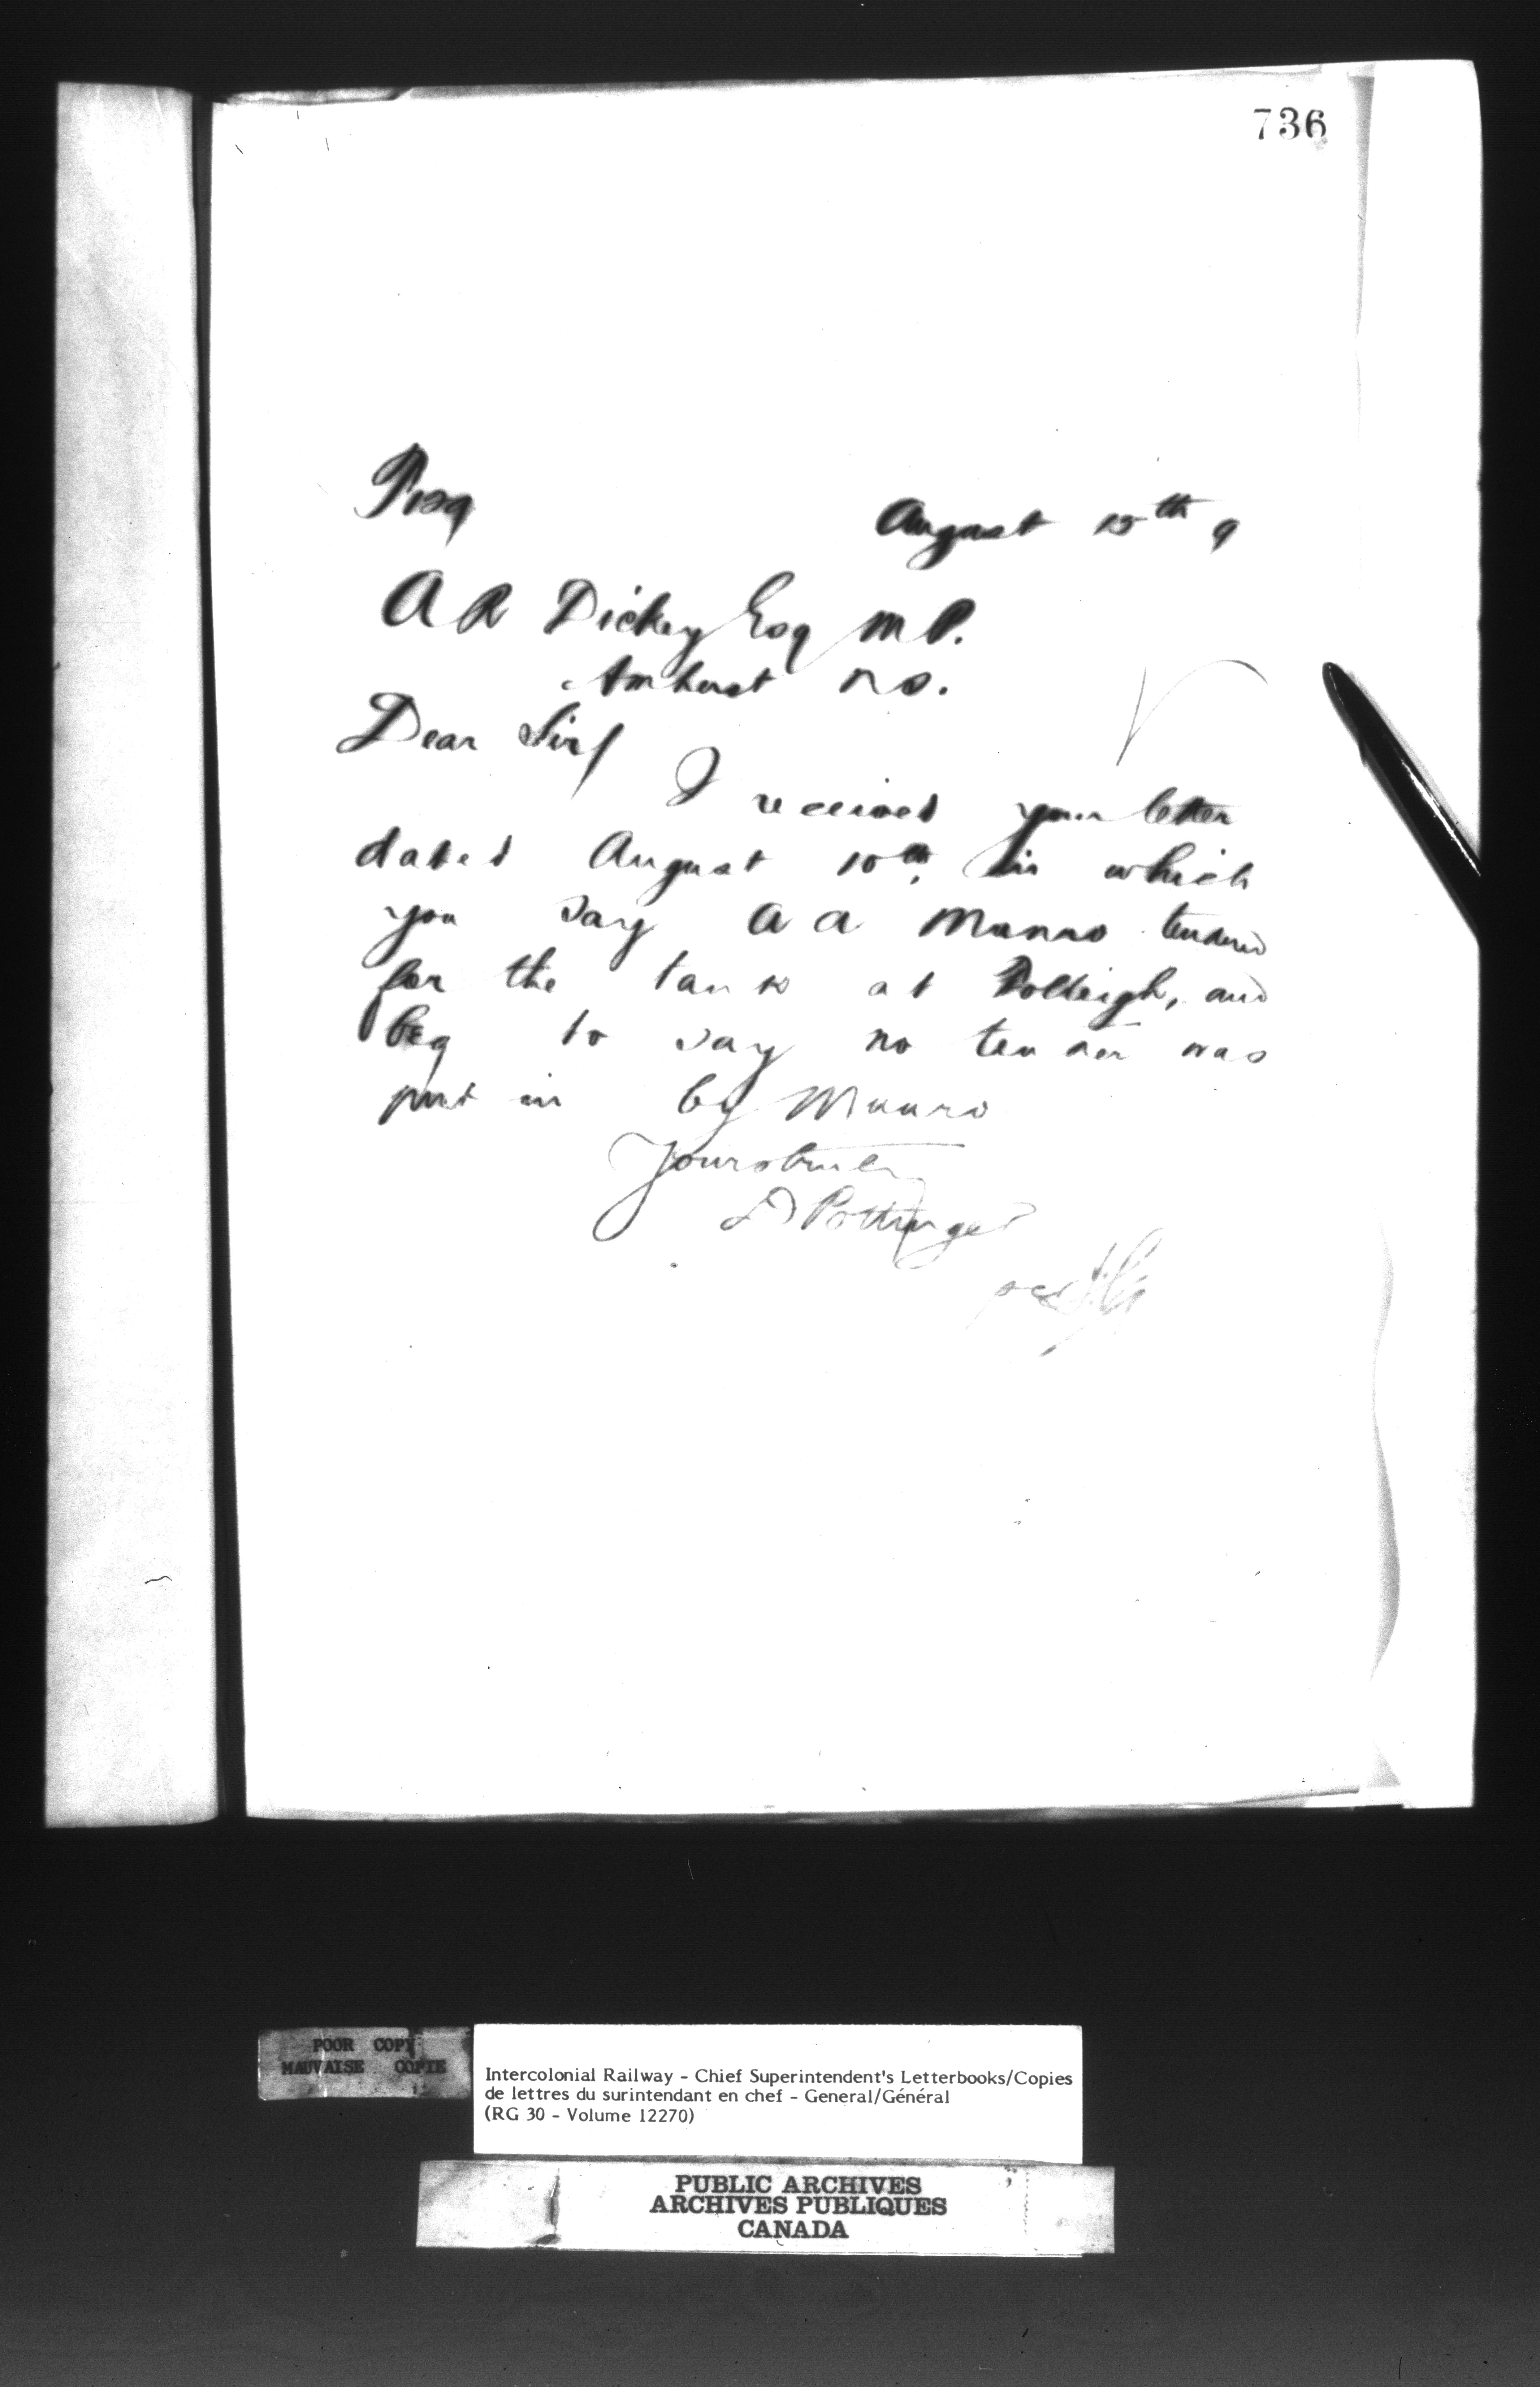 736
August 15th 9
A R Dickey Esq M P.
Amherst NS.
Dear Sir/
I received your letter
dated August 10th, in which
you say A A Munro tendered
for the tank at Polleigh, and
beg to say no tender was
put in by Munro
Yours truly
D Pottinger
per
POOR COPY
MAUVAISE COPIE
Intercolonial Railway - Chief Superintendent's Letterbooks/Copies
de lettres du surintendant en chef - General/Général
(RG 30 - Volume 12270)
PUBLIC ARCHIVES
ARCHIVES PUBLIQUES
CANADA